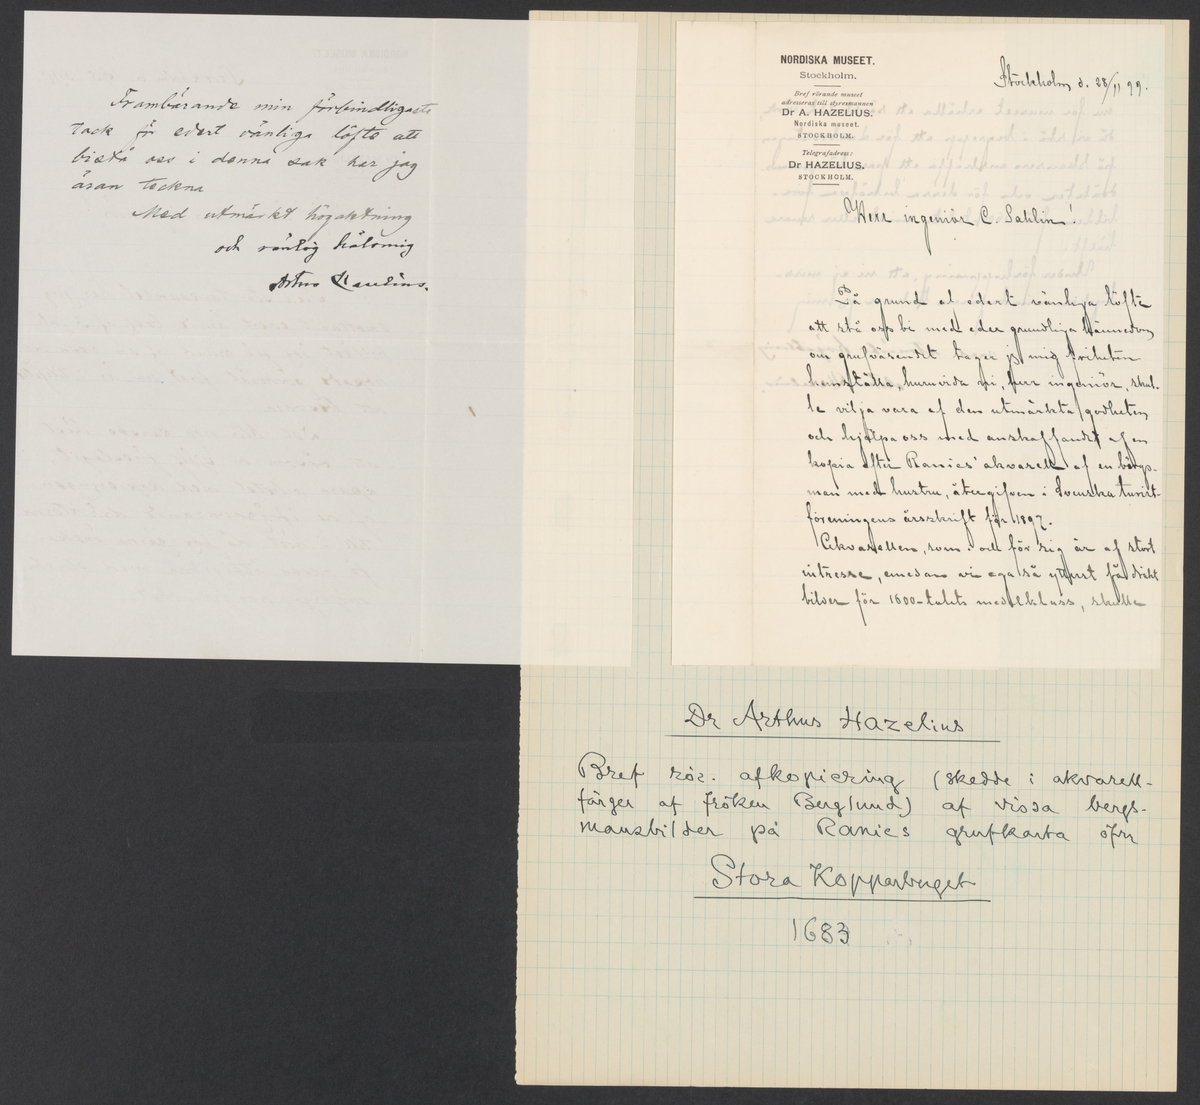 Frambärande min förbindligaste
tack för edert vänliga löfte att
bistå oss i denna sak har jag
äran teckna
Med utmärkt högaktning
och vänlig hälsning
Artur Hazelius.
NORDISKA MUSEET.
Stockholm.
Bref rörande museet
adresseras till styresmannen
Dr A. HAZELIUS.
Nordiska museet.
STOCKHOLM.
Telegrafadress:
Dr HAZELIUS.
STOCKHOLM.
Stockholm d. 28/11 99.
Herr ingeniör C. Sahlin!
På grund af edert vänliga löfte
att stå oss bi med eder grundliga kännedom
om grufväsendet tager jag mig friheten
hemställa, huruvida ni, herr ingeniör, skul-
le vilja vara af den utmärkta godheten
och hjälpa oss med anskaffandet af en
kopia efter Ranies' akvarell af en bärgs-
man med hustru, återgifven i Svenska turist-
föreningens årsskrift för 1897.
Akvarellen, som i och för sig är af stort
intresse, emedan vi ega så ytterst få dräkt
bilder för 1600-talets medelklass, skulle
Dr Arthur Hazelius
Bref rör. afkopiering (skedde i akvarell-
färger af fröken Berglund) af vissa bergs-
mansbilder på Ranies grufkarta öfver
Stora Kopparberget
1683